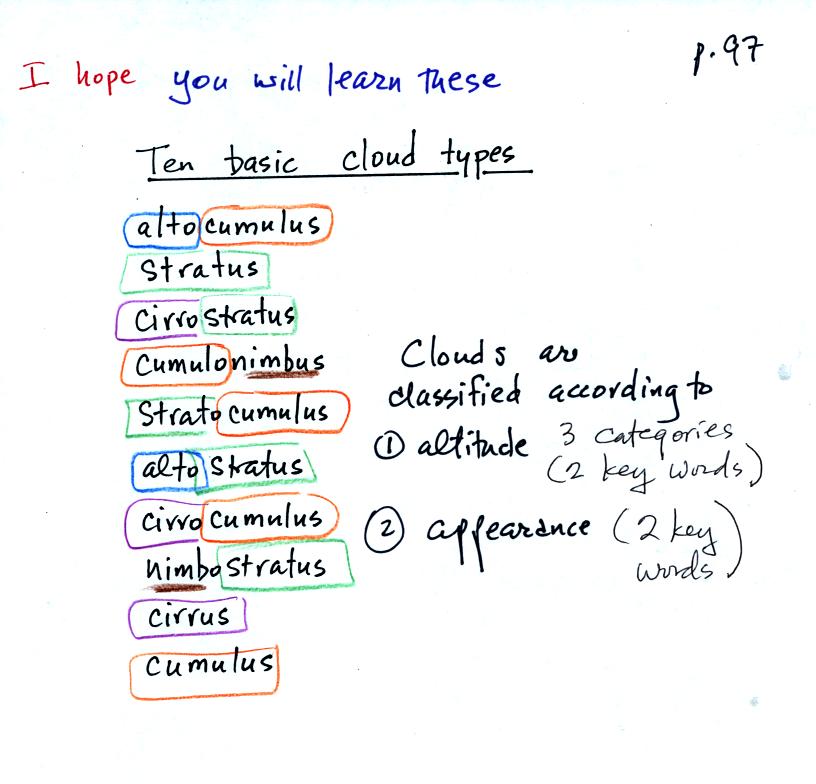 p.97
I hope you will learn these
Ten basic cloud types
altocumulus
Stratus
Cirrostratus
Cumulonimbus
Stratocumulus
altostratus
cirrocumulus
nimbostratus
cirrus
Cumulus
Clouds are
classified according to
① altitude 3 categories
(2 key words)
② appearance (2 key
words)